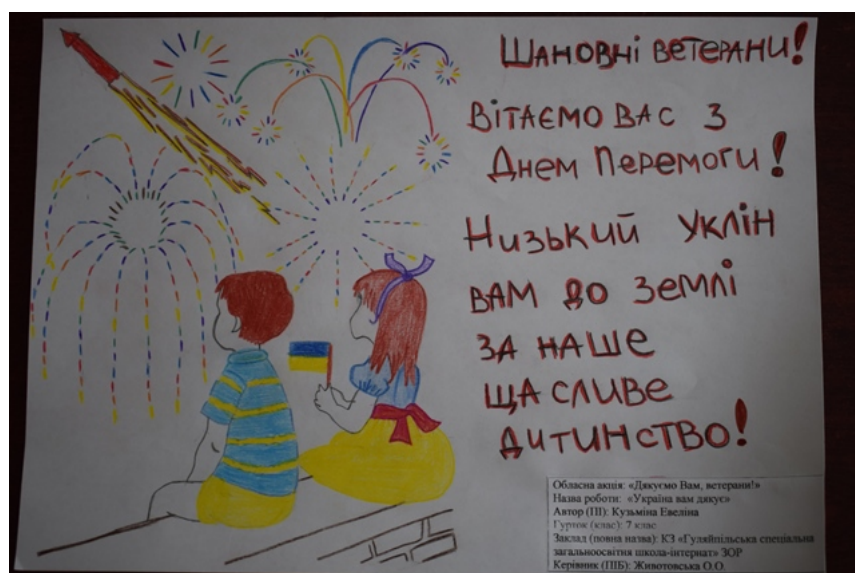 Шановні ветерани!
Вітаємо вас з
Днем Перемоги!
Низький уклін
вам до землі
за наше
щасливе
дитинство!
Обласна акція: «Дякуємо Вам, ветерани!»
Назва роботи: «Україна вам дякує»
Автор (ПІ): Кузьміна Евеліна
Гурток (клас): 7 клас
Заклад (повна назва): КЗ «Гуляйпільська спеціальна
загальноосвітня школа-інтернат» ЗОР
Керівник (ПІБ): Животовська О.О.